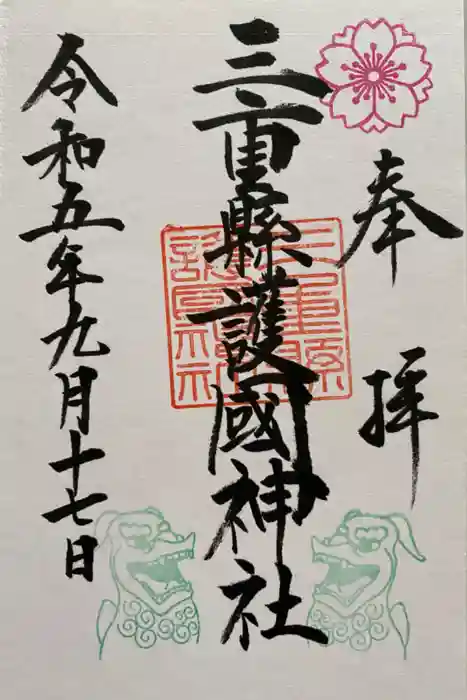 奉拝
三重縣護國神社
令和五年九月十七日
三重縣護國神社